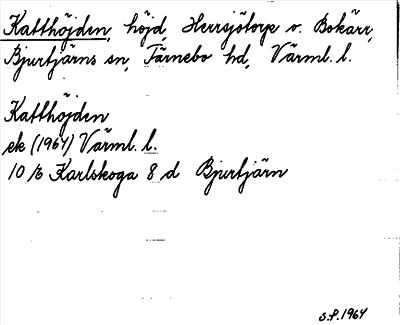 Katthöjden, höjd, Herrsjötorp o. Bokärr,
Bjurtjärns sn, Färnebo hd, Värml. l.
Katthöjden
ek (1964) Värml. l.
10 Karlskoga 8 d Bjurtjärn
S.P. 1964